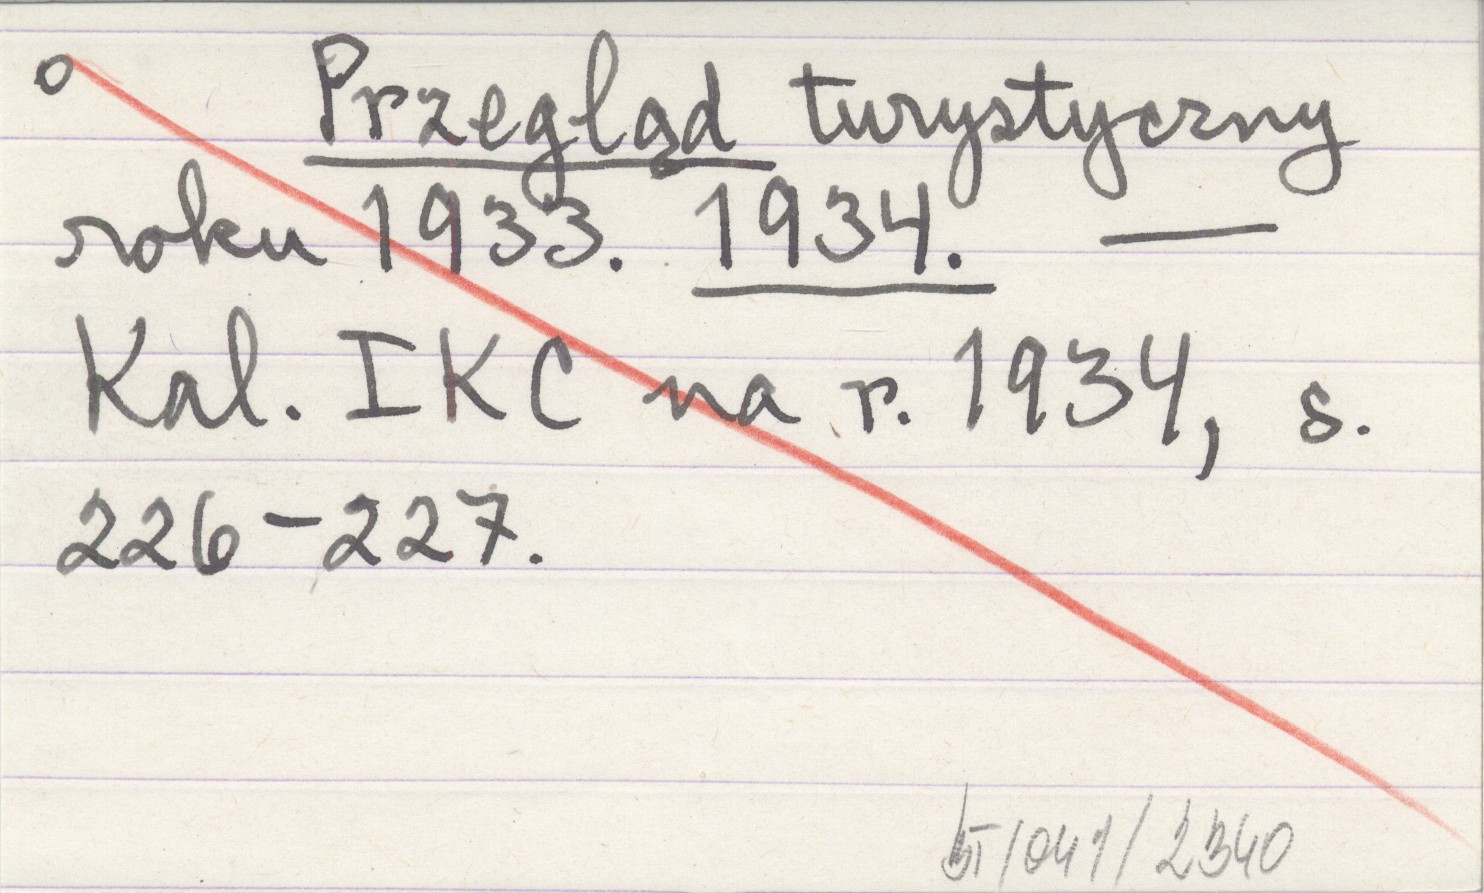 o Przegląd turystyczny
roku 1933. 1934. —
Kal. IKC na r. 1934, s.
226-227.
/041/2340